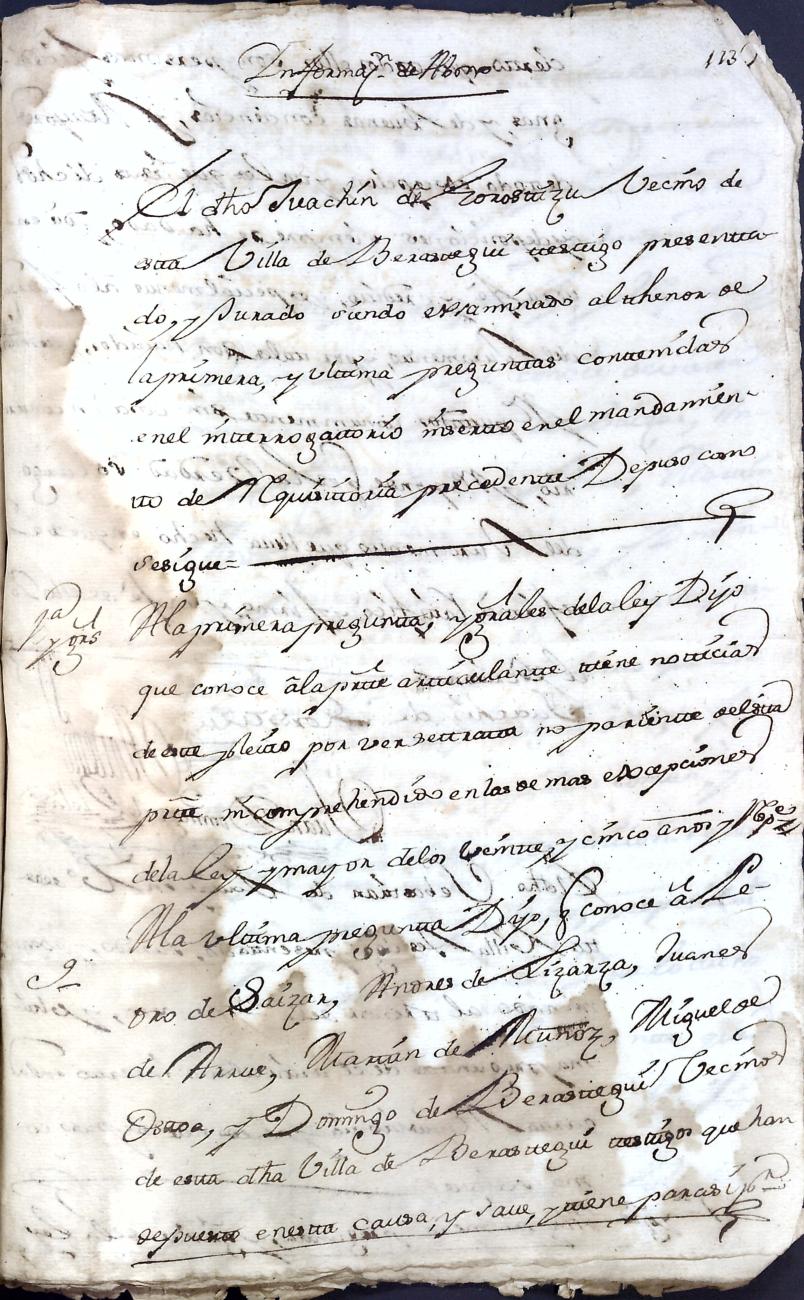 Informaz.on de Abono
113
El dho Juachin de Gorostizu Vecino de
esta Villa de Berastegui testigo presenta-
do, y Jurado siendo exsaminado al thenor de
la primera, y ultima preguntas contenidas
en el interrogatorio inserto en el mandamien-
to de Requisitoria precedente Depuso como
se sigue=
1a y grls
A la primera pregunta, y grales de la ley Dijo
que conoce â la parte articulante tiene noticias
de este pleito por ver se trata no pariente de esta
parte ni comprehendido en las demas excepciones
de la Ley y mayor de los veinte y cinco años, y Rpe
9
A la ultima pregunta Dijo, q conoce â Pe-
dro de Saizar, Andres de Lizarza, Juanes
de Arrue, Martin de Muñoz, Miguel de
Ostoa, y Domingo de Berastegui Vecinos
de esta dha Villa de Berastegui testigos que han
depuesto en esta causa, y save, y tiene para si por